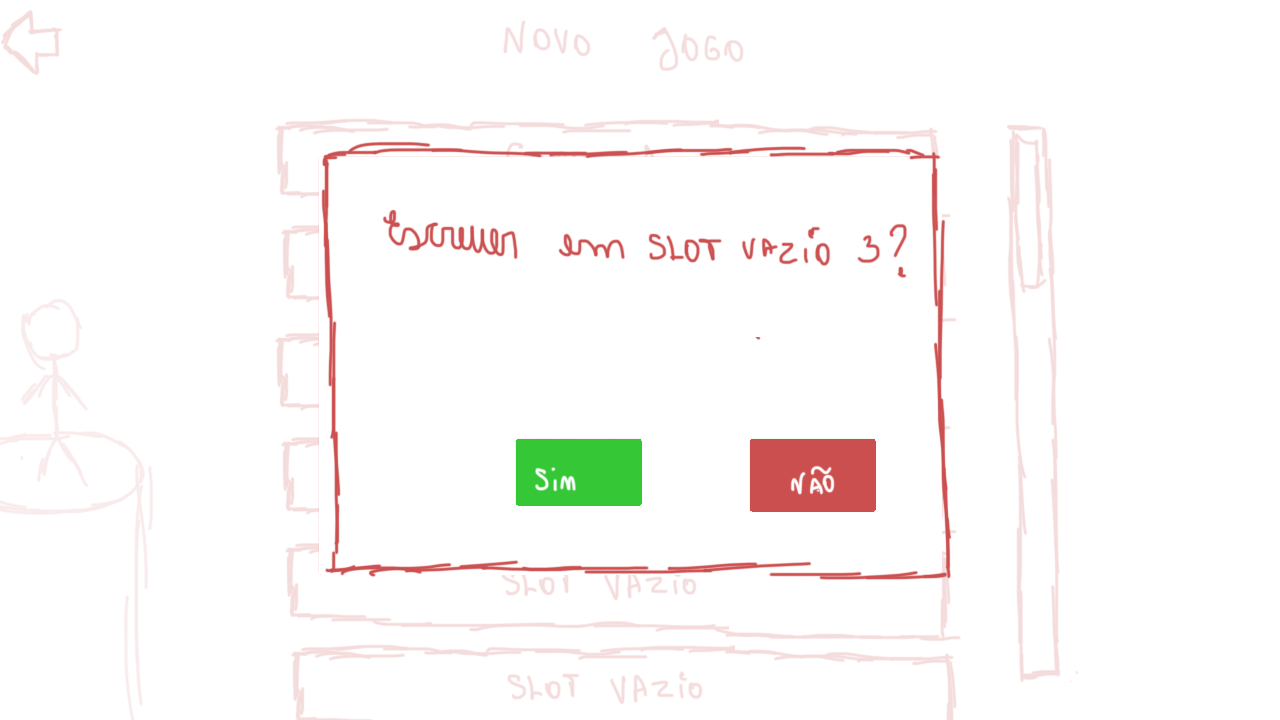 NOVO JOGO
Escrever em SLOT VAZIO 3?
Sim
NÃO
SLOT VAZIO
SLOT VAZIO